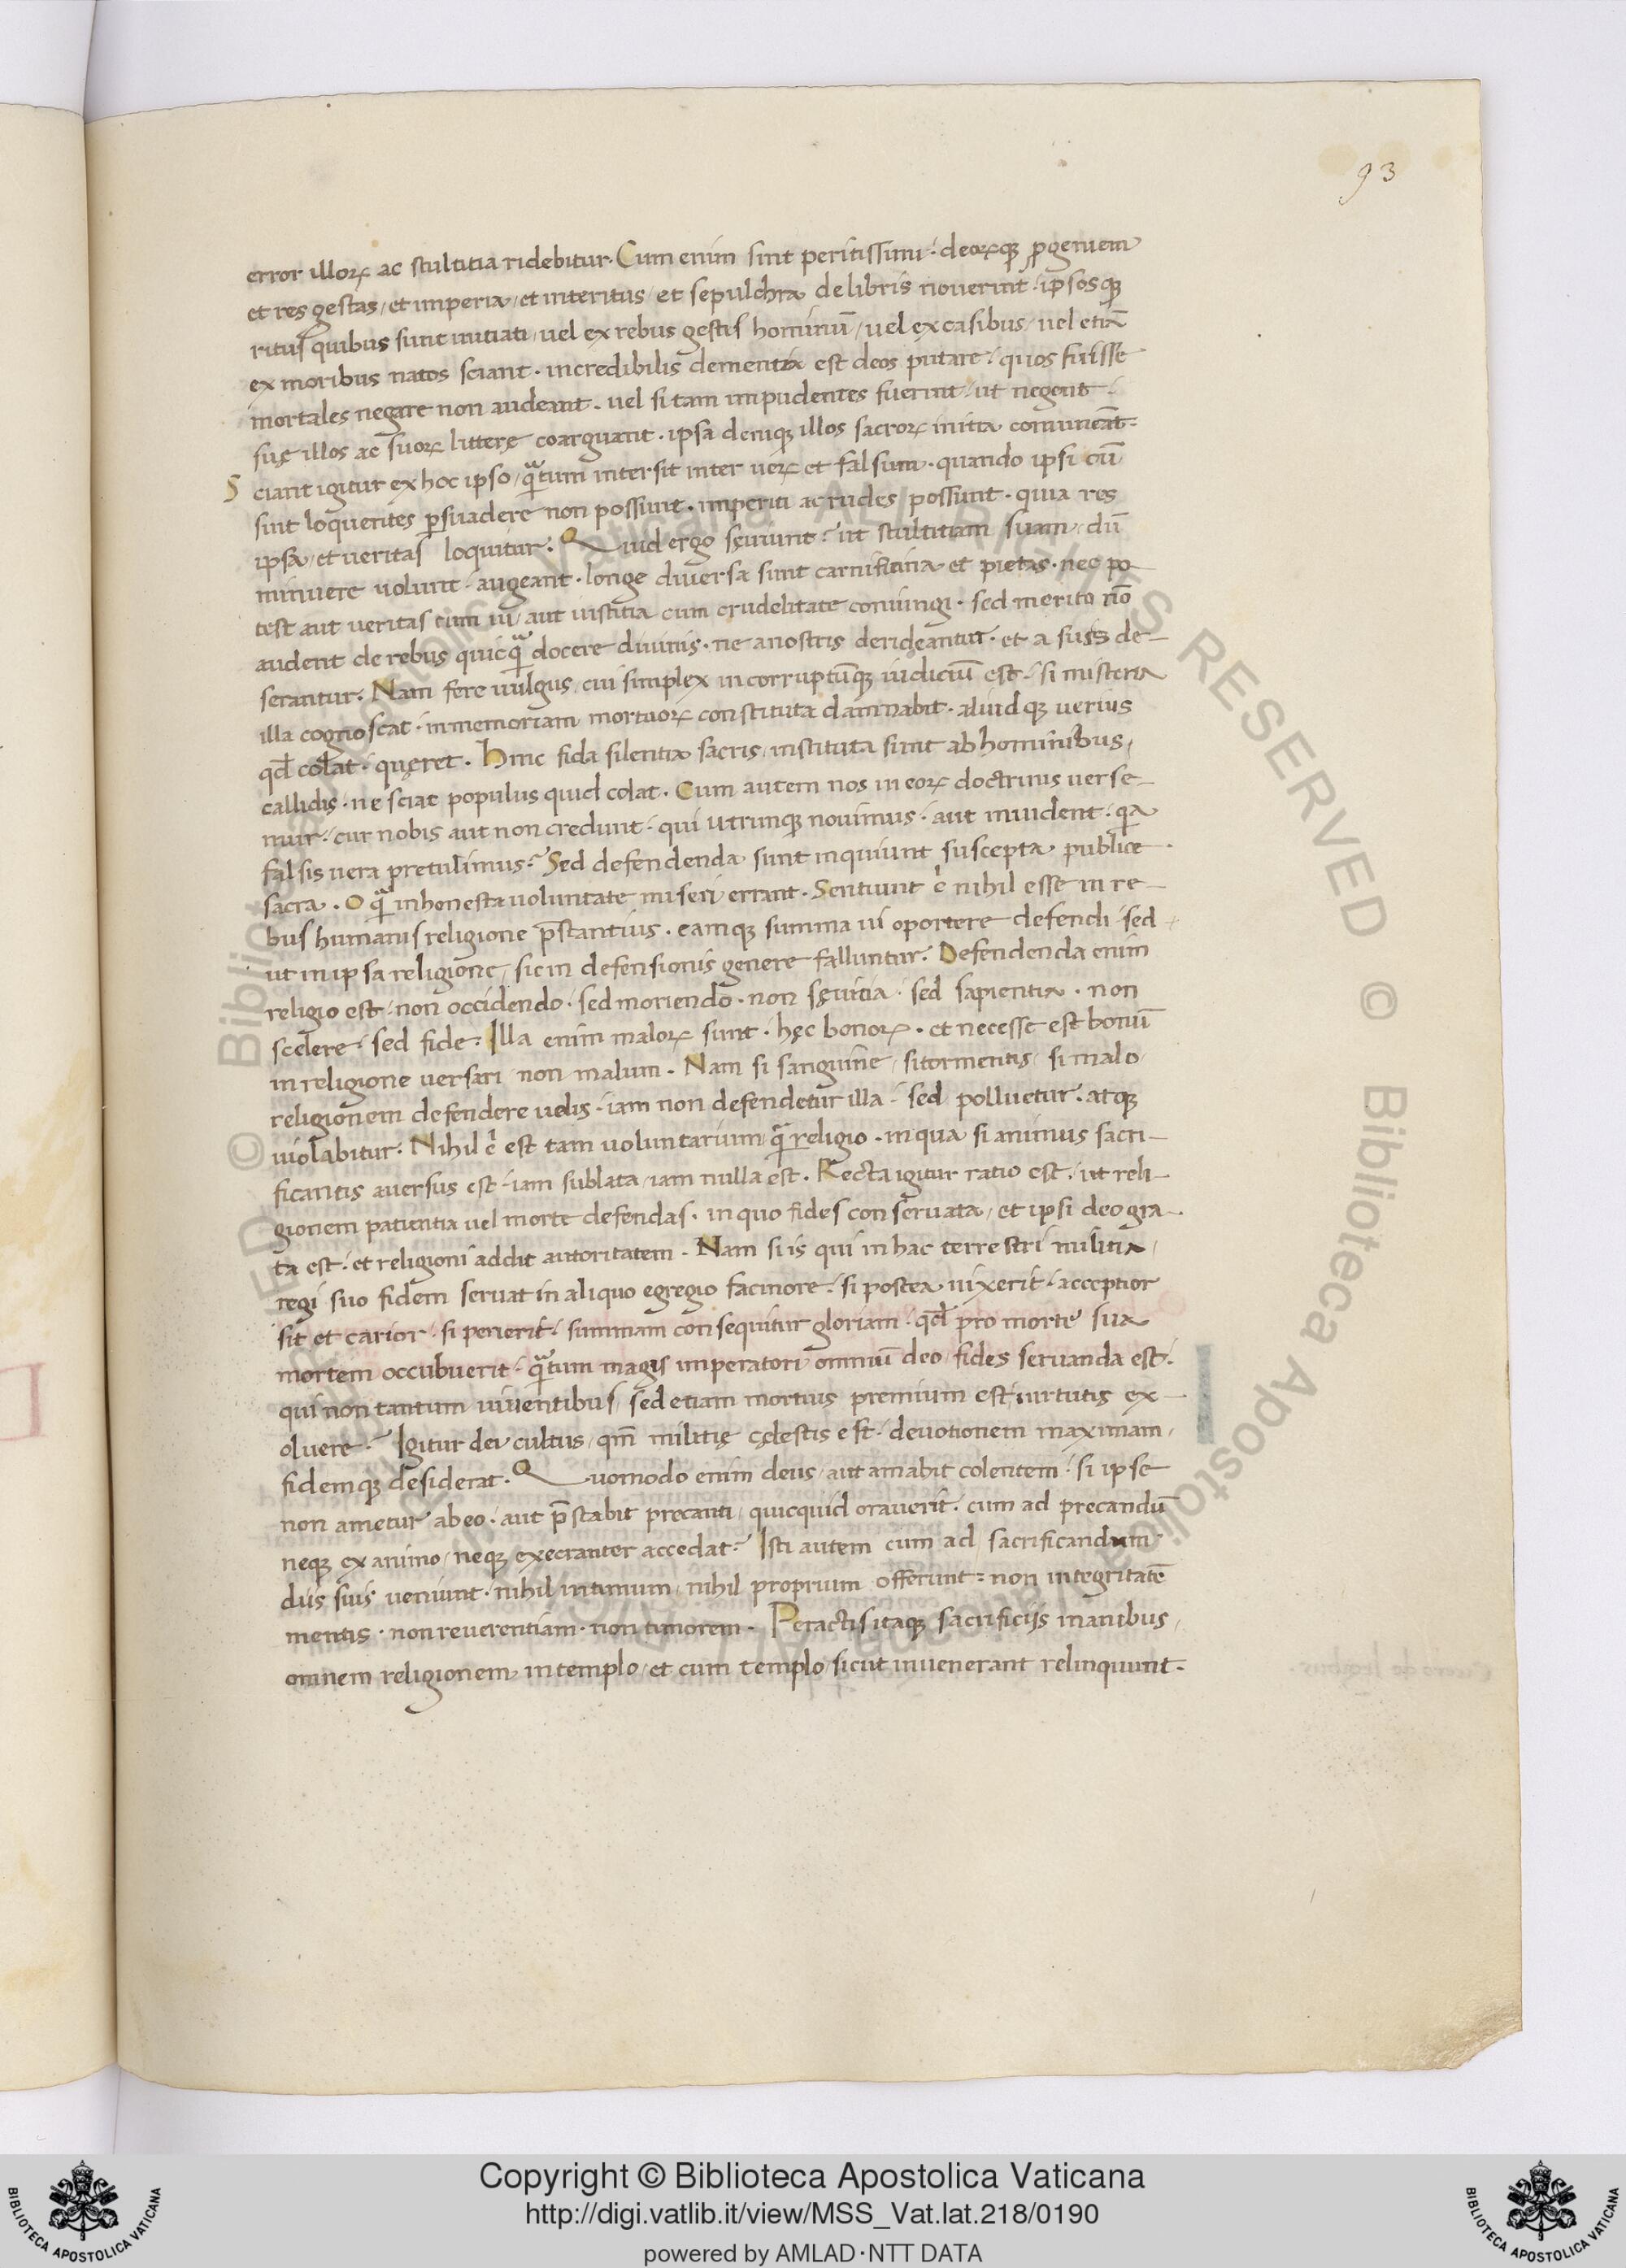 93
error illoꝝ ac stultitia ridebitur. Cum enim sint peritissimi. deorꝝqꝫ ꝓgeniem
et res gestas, et imperia, et interitus, et sepulchra de libris noverint. ipsosqꝫ
ritus quibus sunt initiati, vel ex rebus gestis hominū, vel ex casibus, vel etiā
ex moribus natos sciant. incredibilis dementia est deos putare. quos fuisse
mortales negare non audeant. vel si tam impudentes fuerint, ut negent.
suę illos ac suoꝝ litterę coarguant. ipsa deniqꝫ illos sacroꝝ initia convincāt.
S ciant igitur ex hoc ipso, qᷓtum intersit inter veꝝ et falsum. quando ipsi cū
sint loquentes ꝑsuadere non possunt. imperiti ac rudes possunt. quia res
ipsa, et veritas loquitur. Quid ergo sęviunt? ut stultitiam suam, dū
minuere volunt. augeant. longe diversa sunt carnificina et pietas. nec po-
test aut veritas cum vi, aut iustitia cum crudelitate coniungi. sed merito nō
audent de rebus quicqᷓ docere divinis. ne a nostris derideantur. et a suis de-
serantur. Nam fere vulgus, cui simplex incorruptūqꝫ iudiciū est. si misteria
illa cognoscat. in memoriam mortuoꝝ constituta damnabit. aliudqꝫ verius
qđ colat. quęret. Hinc fida silentia sacris, instituta sunt ab hominibus,
callidis. ne sciat populus quid colat. Cum autem nos in eoꝝ doctrinis verse-
mur. cur nobis aut non credunt. qui utrunqꝫ novimus. aut invident. qa
falsis vera pretulimus? Sed defendenda sunt inquiunt suscepta publice
sacra. O qᷓ inhonesta voluntate miseri errant. Sentiunt ē nihil esse in re-
bus humanis religione p̄stantius. eamqꝫ summa vi oportere defendi. sed
ut in ipsa religione, sic in defensionis genere falluntur. Defendenda enim
religio est, non occidendo. sed moriendo. non sęvitia. sed sapientia. non
scelere. sed fide. Illa enim maloꝝ sunt. hęc bonoꝝ. et necesse est bonū
in religione versari non malum. Nam si sanguine, si tormentis, si malo
religionem defendere velis. iam non defendetur illa. sed polluetur. atqꝫ
violabitur. Nihil ē est tam voluntarium, qᷓ religio. in qua si animus sacri-
ficantis aversus est. iam sublata, iam nulla est. Recta igitur ratio est. ut reli-
gionem patientia vel morte defendas. in quo fides conservata, et ipsi deo gra-
ta est. et religioni addit autoritatem. Nam si is qui in hac terrestri militia,
regi suo fidem servat in aliquo egregio facinore. si postea vixerit. acceptior
sit et carior. si perierit. summam consequitur gloriam. qđ pro morte sua
mortem occubuerit. qᷓtum magis imperatori omniū deo, fides servanda est.
qui non tantum viventibus, sed etiam mortuis premium est virtutis ex-
olvere? Igitur dei cultus, qm̄ militię cęlestis est. devotionem maximam,
fidemqꝫ desiderat. Quomodo enim deus, aut amabit colentem. si ipse
non ametur ab eo. aut p̄stabit precanti, quicquid oraverit. cum ad precandū
neqꝫ ex animo, neqꝫ execranter accedat? Isti autem cum ad sacrificandum
diis suis veniunt. nihil intimum, nihil proprium offerunt. non integritatē
mentis. non reverentiam. non timorem. Peractis itaqꝫ sacrificiis inanibus,
omnem religionem in templo, et cum templo, sicut invenerant relinquunt.
Copyright © Biblioteca Apostolica Vaticana
http://digi.vatlib.it/view/MSS_Vat.lat.218/0190
powered by AMLAD·NTT DATA
BIBLIOTECA APOSTOLICA VATICANA
BIBLIOTECA APOSTOLICA VATICANA